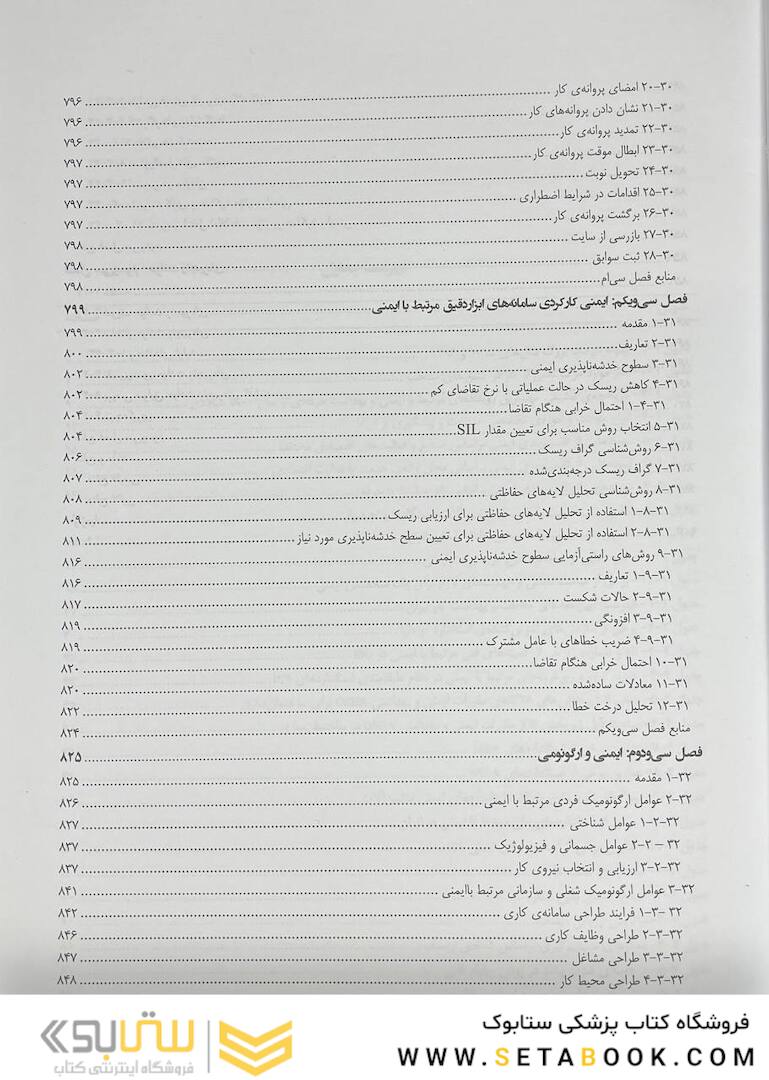 ۲۰-۳۰ امضای پروانه‌ی کار ........ ۷۹۶
۲۱-۳۰ نشان دادن پروانه‌های کار ........ ۷۹۶
۲۲-۳۰ تمدید پروانه‌ی کار ........ ۷۹۶
۲۳-۳۰ ابطال موقت پروانه‌ی کار ........ ۷۹۷
۲۴-۳۰ تحویل نوبت ........ ۷۹۷
۲۵-۳۰ اقدامات در شرایط اضطراری ........ ۷۹۷
۲۶-۳۰ برگشت پروانه‌ی کار ........ ۷۹۷
۲۷-۳۰ بازرسی از سایت ........ ۷۹۸
۲۸-۳۰ ثبت سوابق ........ ۷۹۸
منابع فصل سی‌ام ........ ۷۹۸
فصل سی‌ویکم: ایمنی کارکردی سامانه‌های ابزاردقیق مرتبط با ایمنی ........ ۷۹۹
۱-۳۱ مقدمه ........ ۷۹۹
۲-۳۱ تعاریف ........ ۸۰۰
۳-۳۱ سطوح خدشه‌ناپذیری ایمنی ........ ۸۰۲
۴-۳۱ کاهش ریسک در حالت عملیاتی با نرخ تقاضای کم ........ ۸۰۲
۱-۴-۳۱ احتمال خرابی هنگام تقاضا ........ ۸۰۴
۵-۳۱ انتخاب روش مناسب برای تعیین مقدار SIL ........ ۸۰۴
۶-۳۱ روش‌شناسی گراف ریسک ........ ۸۰۶
۷-۳۱ گراف ریسک درجه‌بندی‌شده ........ ۸۰۷
۸-۳۱ روش‌شناسی تحلیل لایه‌های حفاظتی ........ ۸۰۸
۱-۸-۳۱ استفاده از تحلیل لایه‌های حفاظتی برای ارزیابی ریسک ........ ۸۰۹
۲-۸-۳۱ استفاده از تحلیل لایه‌های حفاظتی برای تعیین سطح خدشه‌ناپذیری مورد نیاز ........ ۸۱۱
۹-۳۱ روش‌های راستی‌آزمایی سطوح خدشه‌ناپذیری ایمنی ........ ۸۱۶
۱-۹-۳۱ تعاریف ........ ۸۱۶
۲-۹-۳۱ حالات شکست ........ ۸۱۷
۳-۹-۳۱ افزونگی ........ ۸۱۹
۴-۹-۳۱ ضریب خطاهای با عامل مشترک ........ ۸۱۹
۱۰-۳۱ احتمال خرابی هنگام تقاضا ........ ۸۲۰
۱۱-۳۱ معادلات ساده‌شده ........ ۸۲۰
۱۲-۳۱ تحلیل درخت خطا ........ ۸۲۲
منابع فصل سی‌ویکم ........ ۸۲۴
فصل سی‌ودوم: ایمنی و ارگونومی ........ ۸۲۵
۱-۳۲ مقدمه ........ ۸۲۵
۲-۳۲ عوامل ارگونومیک فردی مرتبط با ایمنی ........ ۸۲۶
۱-۲-۳۲ عوامل شناختی ........ ۸۲۷
۳۲ – ۲-۲ عوامل جسمانی و فیزیولوژیک ........ ۸۳۷
۳-۲-۳۲ ارزیابی و انتخاب نیروی کار ........ ۸۳۷
۳-۳۲ عوامل ارگونومیک شغلی و سازمانی مرتبط باایمنی ........ ۸۴۱
۳۲ -۳-۱ فرایند طراحی سامانه‌ی کاری ........ ۸۴۲
۲-۳-۳۲ طراحی وظایف کاری ........ ۸۴۶
۳-۳-۳۲ طراحی مشاغل ........ ۸۴۷
۴-۳-۳۲ طراحی محیط کار ........ ۸۴۸
فروشگاه کتاب پزشکی ستابوک
WWW.SETABOOK.COM
ستابوک
فروشگاه اینترنتی کتاب